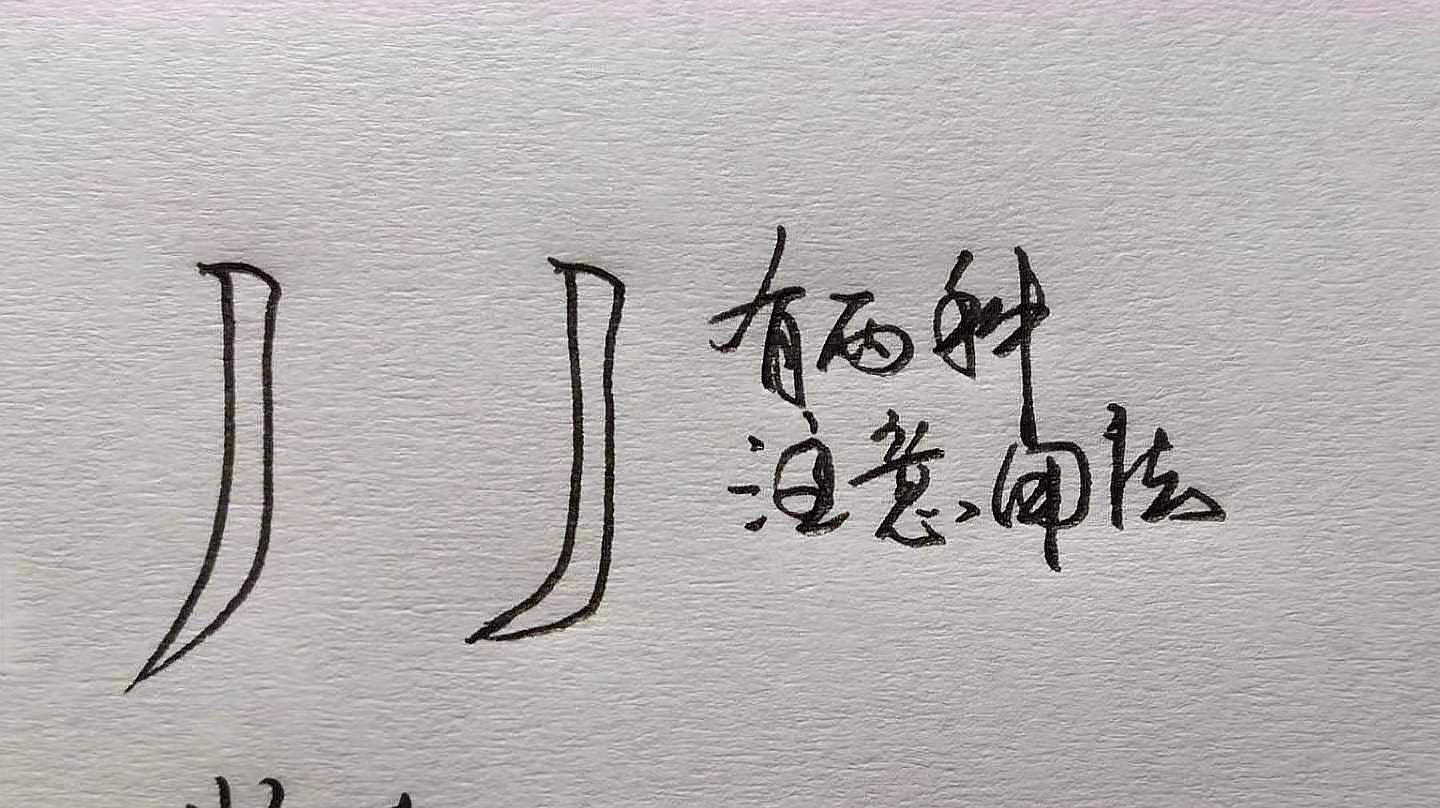 有两种
注意用法